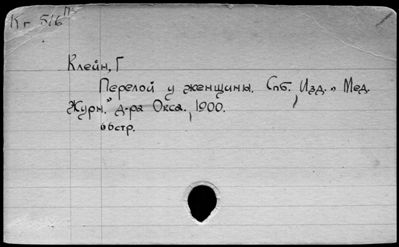 Кг 516
Клейн, Г
Перелой у женщины. Спб., Изд. „Мед.
Журн." д-ра Окса, 1900.
обстр.